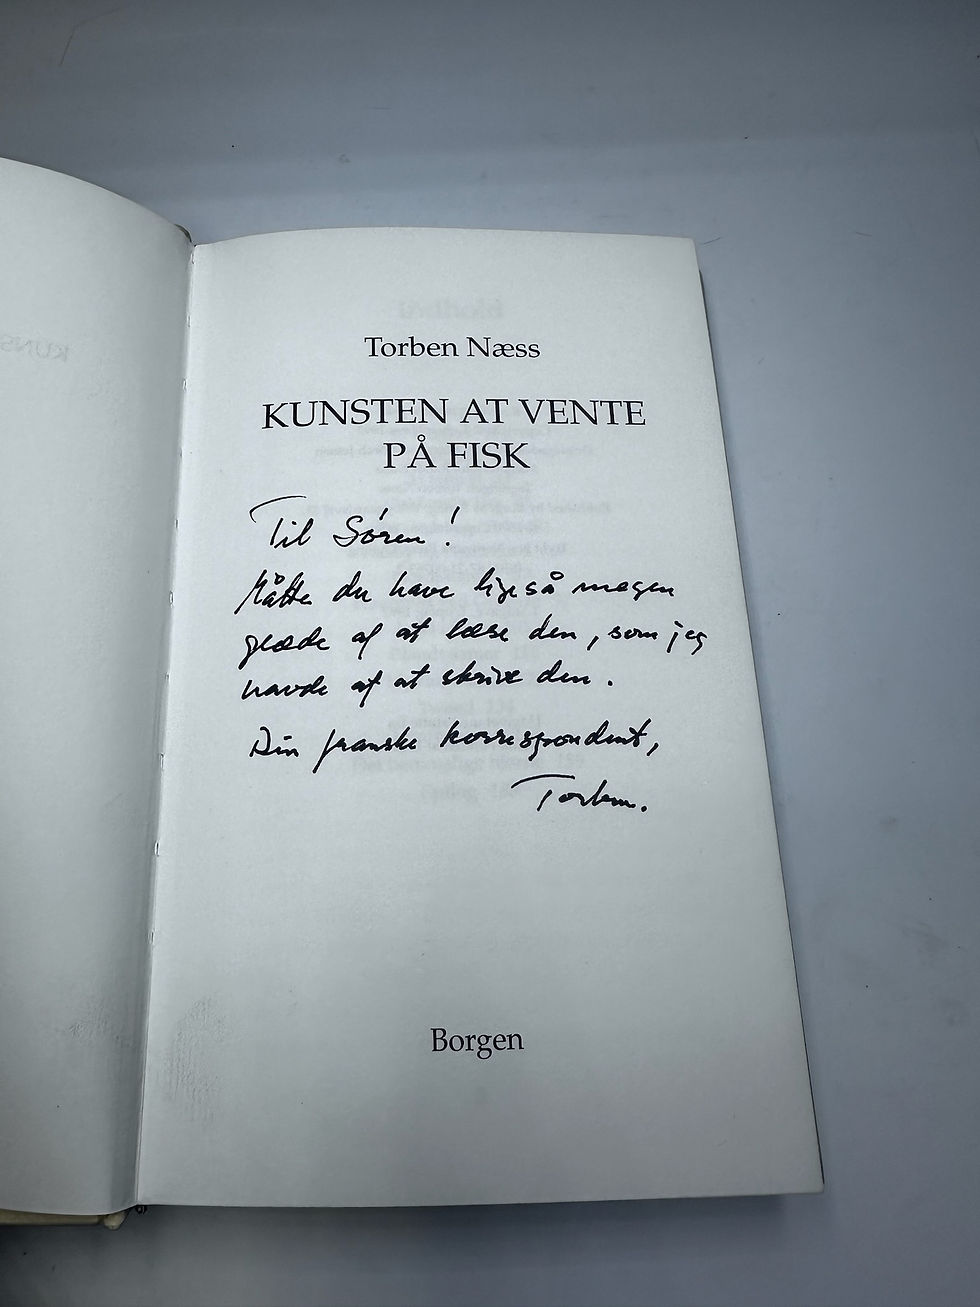 Torben Næss
KUNSTEN AT VENTE
PÅ FISK
Til Søren!
Måtte du have ligeså megen
glæde af at læse den, som jeg
havde af at skrive den.
Din franske korrespondent,
Torben.
Borgen